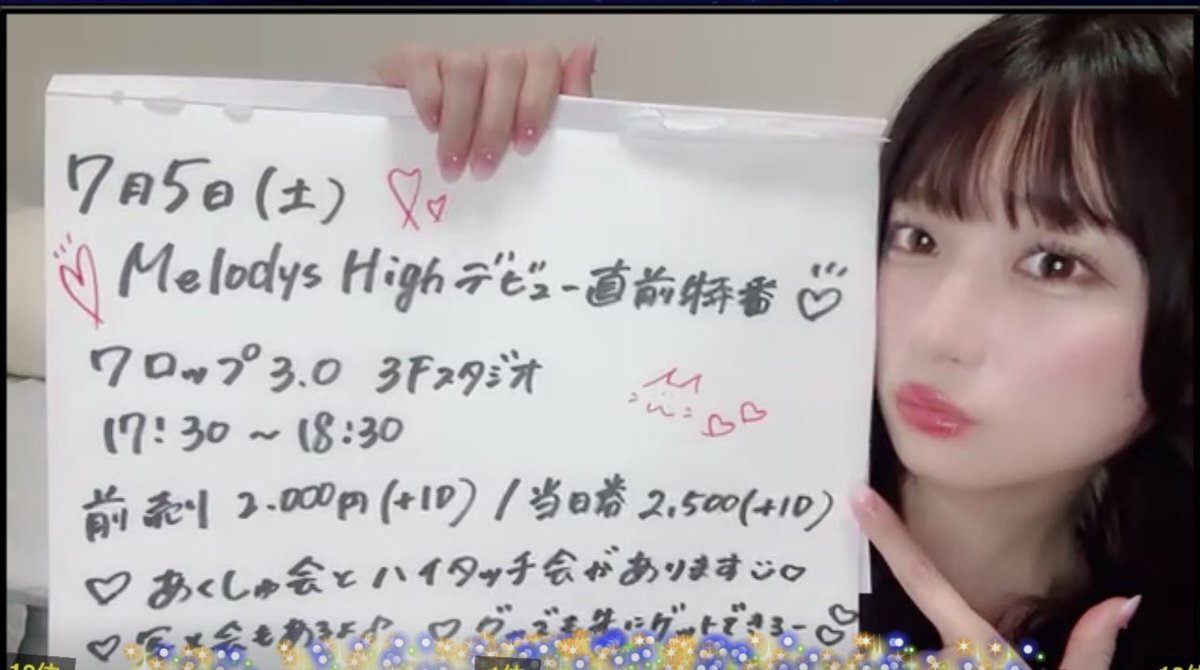 7月5日(土)
Melodys Highデビュー直前特番
ワロップ3.0 3Fスタジオ
17:30~18:30
前売り 2.000円(+1D) / 当日券 2,500(+1D)
あくしゅ会とハイタッチ会があります
写メ会もあるよ グッズも先にゲットできるー